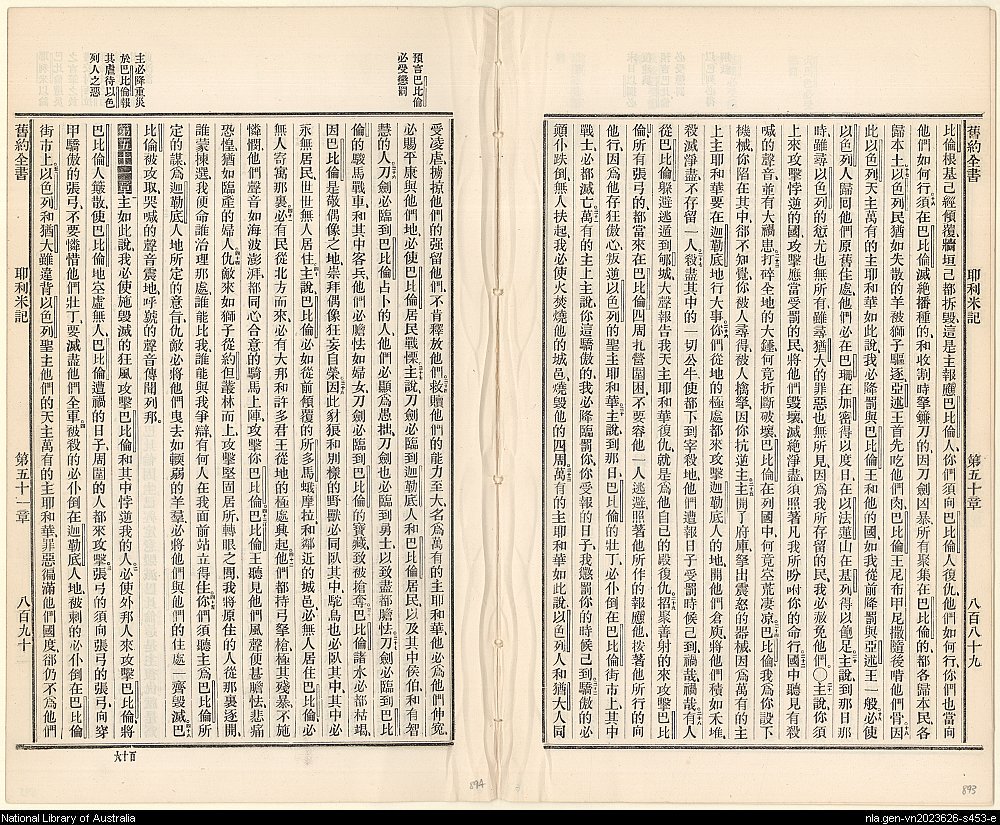 舊約全書 耶利米記 第五十章 八百八十九
比倫根基已經傾覆牆垣已都拆毀這是主報應巴比倫人你們須向巴比倫人復仇他們如何行你們也當向
他們如何行須在巴比倫滅絕播種的和收割時拏鐮刀的因刀劍凶暴所有聚集在巴比倫的都各歸本民各
歸本土以色列民猶如失散的羊被獅子驅逐亞述王首先吃他們肉巴比倫王尼布甲尼撒隨後啃他們骨因
此以色列天主萬有的主耶和華如此說我必降罰與巴比倫王和他的國如我從前降罰與亞述王一般必使
以色列人歸回他們原舊住處他們必在巴珊在加密得以度日在以法蓮山在基列得以飽足主說到那日那
時雖尋以色列的愆尤也無所有雖尋猶大的罪惡也無所見因爲我所存留的民我必赦免他們〇主說你須
上來攻擊悖逆的國攻擊應當受罰的民將他們毀壞滅絕淨盡須照著凡我所吩咐你的命行國中聽見有殺
喊的聲音並有大禍患打碎全地的大錘何竟折斷破壞巴比倫在列國中何竟空荒凄凉巴比倫我爲你設下
機械你陷在其中卻不知覺你被人尋得被人擒拏因你抗逆主主開了府庫拏出震怒的器械因爲萬有的主
上主耶和華要在迦勒底地行大事你們從地的極處都來攻擊迦勒底人的地開他們倉庾將他們積如禾堆
殺滅淨盡不存留一人殺盡其中的一切公牛使都下到宰殺地他們遭報日子受罰時候已到禍哉禍哉有人
從巴比倫躲避逃遁到郇城大聲報告我天主耶和華復仇就是爲他自己的殿復仇招聚善射的來攻擊巴比
倫所有張弓的都當來在巴比倫四周札營圍困不要容他一人逃避照著他所作的報應他按著他所行的向
他行因爲他存狂傲心叛逆以色列的聖主耶和華主說到那日巴比倫的壯丁必仆倒在巴比倫街市上其中
戰士必都滅亡萬有的主上主說你這驕傲的我必降臨罰你你受報的日子我懲罰你的時候已到驕傲的必
顚仆跌倒無人扶起我必使火焚燒他的城邑燒毀他的四周萬有的主耶和華如此說以色列人和猶大人同
預言巴比倫
必受懲罰
受凌虐擄掠他們的强留他們不肯釋放他們救贖他們的能力至大名爲萬有的主耶和華他必爲他們伸寃
必賜平康與他們地必使巴比倫居民戰慄主說刀劍必臨到迦勒底人和巴比倫居民以及其中侯伯和有智
慧的人刀劍必臨到巴比倫占卜的人他們必顯爲愚拙刀劍也必臨到勇士以致盡都膽怯刀劍必臨到巴比
倫的駿馬戰車和其中客兵他們必膽怯如婦女刀劍必臨到巴比倫的寶藏致被搶奪巴比倫諸水必都枯竭
因巴比倫是敬偶像之地崇拜偶像狂妄自榮因此豺狼和別樣的野獸必同臥其中鴕鳥也必臥其中其中必
永無居民世世無人居住主說巴比倫必如從前傾覆的所多馬蛾摩拉和鄰近的城邑必無人居住巴比倫必
無人寄寓那裏必有民從北方而來必有大邦和許多君王從地的極處興起他們都持弓拏槍極其殘暴不施
憐憫他們聲音如海波澎湃都同心合意的騎馬上陣攻擊你巴比倫巴比倫王聽見他們風聲便甚膽怯悲痛
恐惶猶如臨產的婦人仇敵來如獅子從約但叢林而上攻擊堅固居所轉眼之間我將原住的人從那裏逐開
誰蒙揀選我便命誰治理那處誰能比我誰能與我爭辯有何人在我面前站立得住你們須聽主爲巴比倫所
定的謀爲迦勒底人地所定的意旨仇敵必將他們曳去如輭弱的羊羣必將他們與他們的住處一齊毀滅巴
比倫被攻取哭喊的聲音震地呼號的聲音傳聞列邦
主必降重災
於巴比倫報
其虐待以色
列人之惡
第五十一章 主如此說我必使施毀滅的狂風攻擊巴比倫和其中悖逆我的人必使外邦人來攻擊巴比倫將
巴比倫人簸散使巴比倫地空虛無人巴比倫遭禍的日子周圍的人都來攻擊張弓的須向張弓的張弓向穿
甲驕傲的張弓不要憐惜他們壯丁要滅盡他們全軍被殺的必仆倒在迦勒底人地被刺的必仆倒在巴比倫
街市上以色列和猶大雖違背以色列聖主他們的天主萬有的主耶和華罪惡徧滿他們國度卻仍不爲他們
舊約全書 耶利米記 第五十一章 八百九十
百十六
894
893
National Library of Australia
nla.gen-vn2023626-s453-e